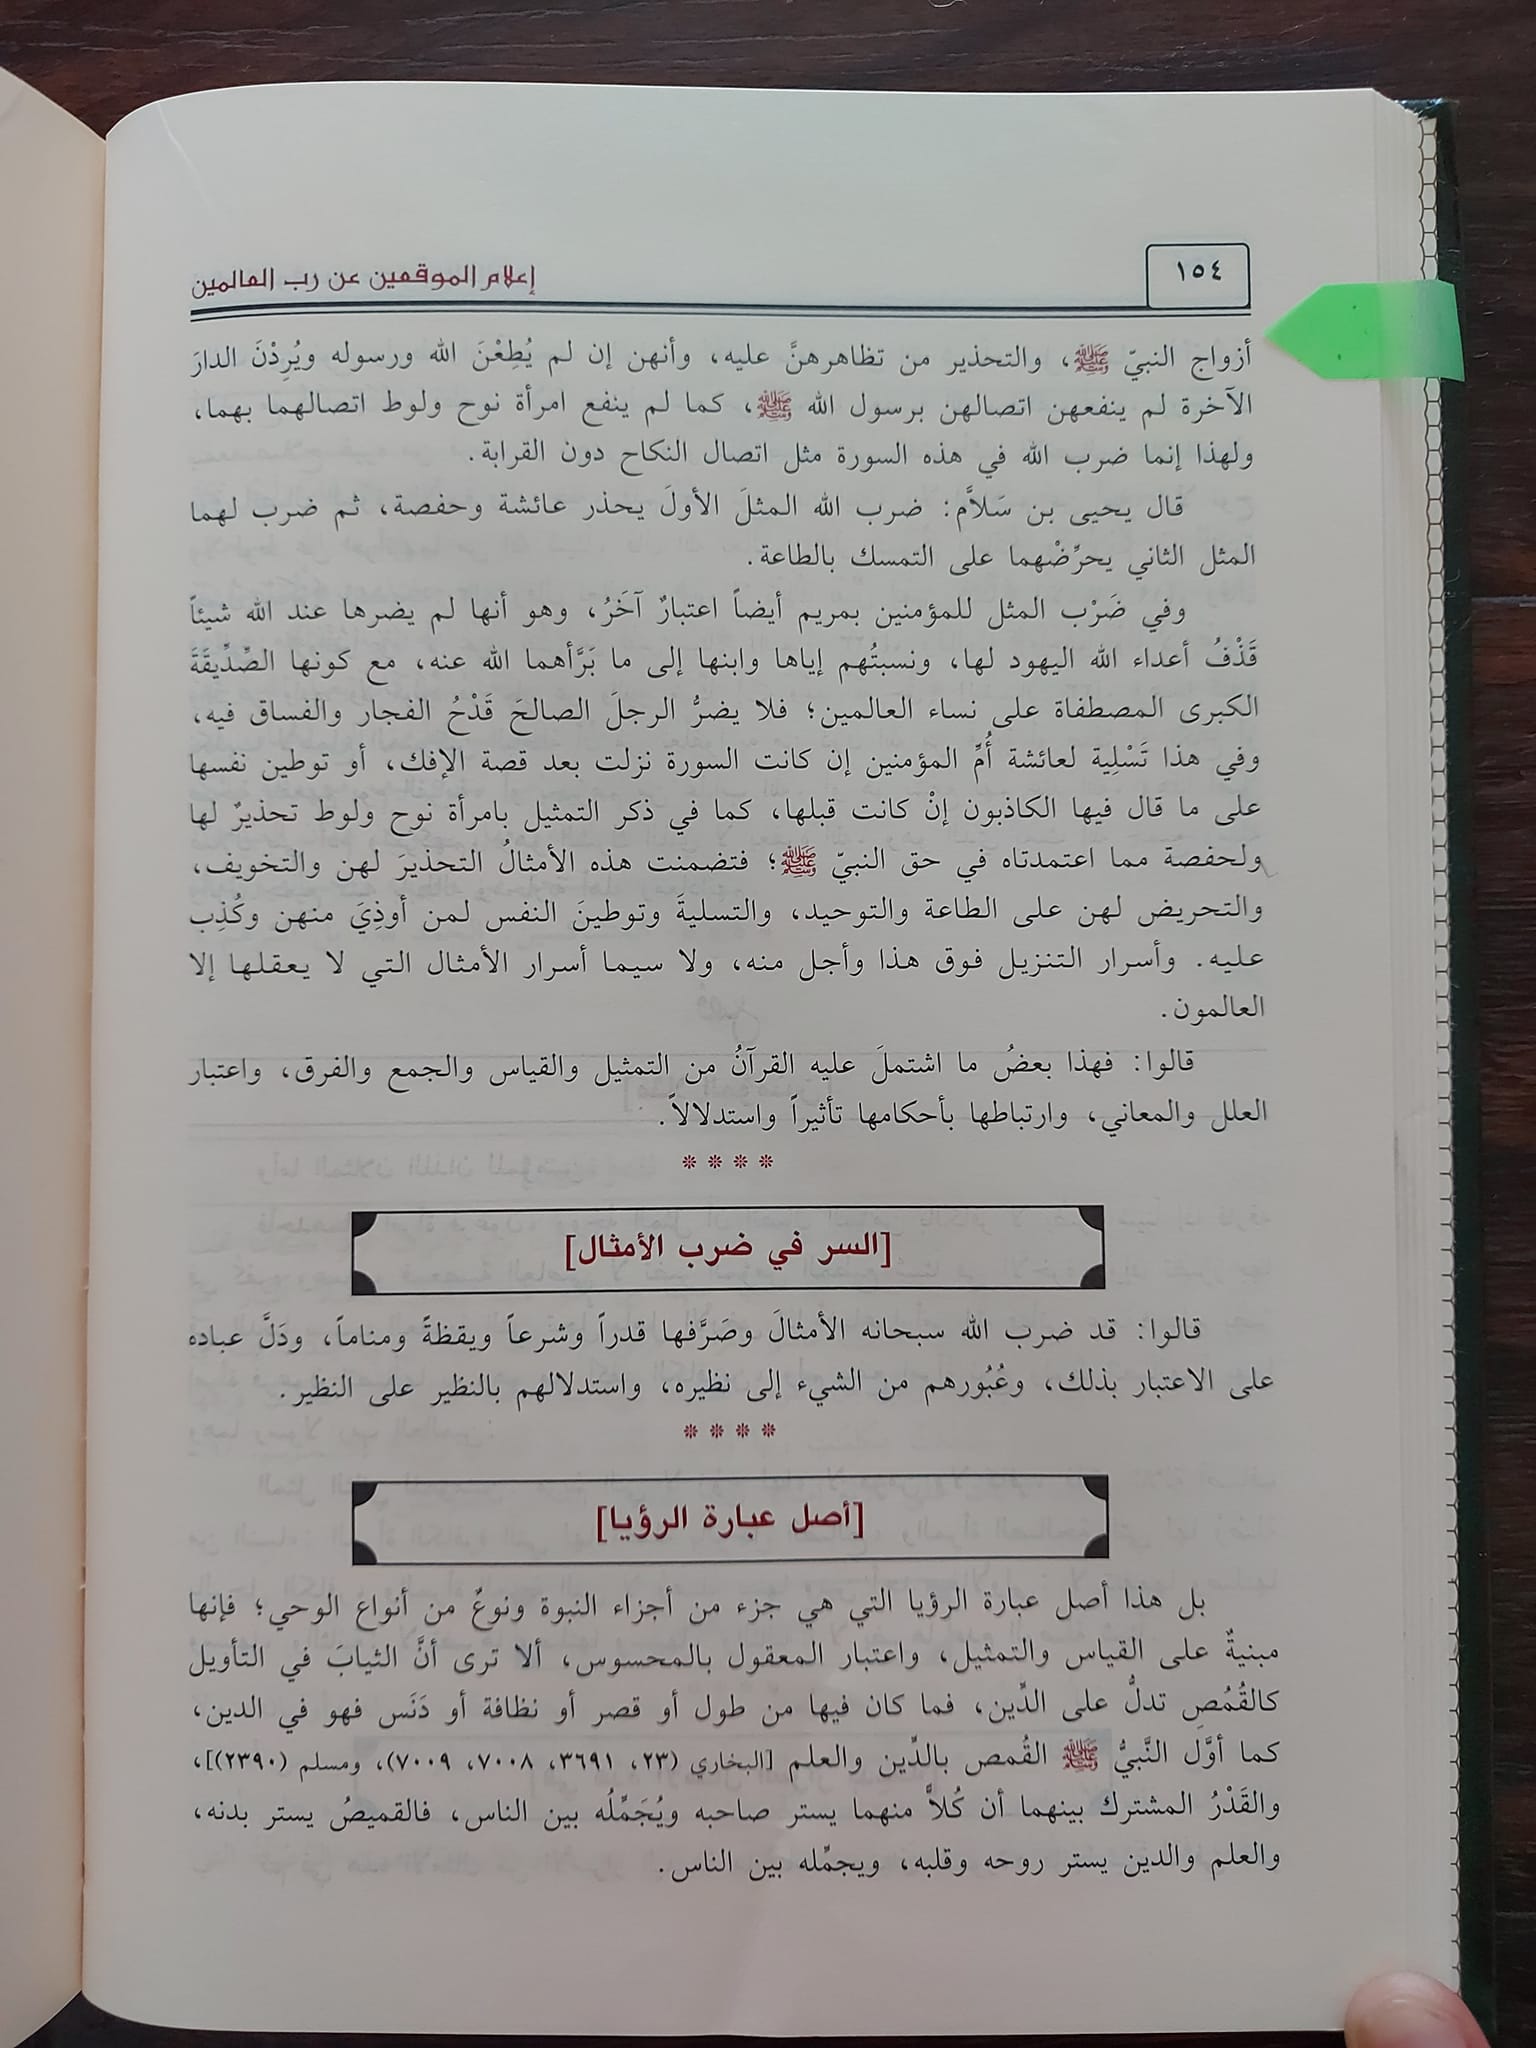 ١٥٤
إعلام الموقعين عن رب العالمين
أزواج النبيّ ﷺ، والتحذير من تظاهرهنَّ عليه، وأنهن إن لم يُطِعْنَ الله ورسوله ويُرِدْنَ الدارَ
الآخرة لم ينفعهن اتصالهن برسول الله ﷺ، كما لم ينفع امرأة نوح ولوط اتصالهما بهما،
ولهذا إنما ضرب الله في هذه السورة مثل اتصال النكاح دون القرابة.
قال يحيى بن سَلاَّم: ضرب الله المثلَ الأولَ يحذر عائشة وحفصة، ثم ضرب لهما
المثل الثاني يحرِّضْهما على التمسك بالطاعة.
وفي ضَرْب المثل للمؤمنين بمريم أيضاً اعتبارٌ آخَرُ، وهو أنها لم يضرها عند الله شيئاً
قَذْفُ أعداء الله اليهود لها، ونسبتُهم إياها وابنها إلى ما بَرَّأهما الله عنه، مع كونها الصِّدِّيقَةَ
الكبرى المصطفاة على نساء العالمين؛ فلا يضرُّ الرجلَ الصالحَ قَدْحُ الفجار والفساق فيه،
وفي هذا تَسْلِية لعائشة أُمِّ المؤمنين إن كانت السورة نزلت بعد قصة الإفك، أو توطين نفسها
على ما قال فيها الكاذبون إنْ كانت قبلها، كما في ذكر التمثيل بامرأة نوح ولوط تحذيرٌ لها
ولحفصة مما اعتمدتاه في حق النبيّ ﷺ؛ فتضمنت هذه الأمثالُ التحذيرَ لهن والتخويف،
والتحريض لهن على الطاعة والتوحيد، والتسليةَ وتوطينَ النفس لمن أوذِيَ منهن وكُذِب
عليه. وأسرار التنزيل فوق هذا وأجل منه، ولا سيما أسرار الأمثال التي لا يعقلها إلا
العالمون.
قالوا: فهذا بعضُ ما اشتملَ عليه القرآنُ من التمثيل والقياس والجمع والفرق، واعتبار
العلل والمعاني، وارتباطها بأحكامها تأثيراً واستدلالاً.
* * * *
[السر في ضرب الأمثال]
قالوا: قد ضرب الله سبحانه الأمثالَ وصَرَّفها قدراً وشرعاً ويقظةً ومناماً، ودَلَّ عباده
على الاعتبار بذلك، وعُبُورهم من الشيء إلى نظيره، واستدلالهم بالنظير على النظير.
* * * *
[أصل عبارة الرؤيا]
بل هذا أصل عبارة الرؤيا التي هي جزء من أجزاء النبوة ونوعٌ من أنواع الوحي؛ فإنها
مبنيةٌ على القياس والتمثيل، واعتبار المعقول بالمحسوس، ألا ترى أنَّ الثيابَ في التأويل
كالقُمُصِ تدلُّ على الدِّين، فما كان فيها من طول أو قصر أو نظافة أو دَنَس فهو في الدين،
كما أوَّل النَّبيُّ ﷺ القُمص بالدِّين والعلم [البخاري (٢٣، ٣٦٩١، ٧٠٠٨، ٧٠٠٩)، ومسلم (٢٣٩٠)]،
والقَدْرُ المشترك بينهما أن كُلاًّ منهما يستر صاحبه ويُجَمِّلُه بين الناس، فالقميصُ يستر بدنه،
والعلم والدين يستر روحه وقلبه، ويجمِّله بين الناس.